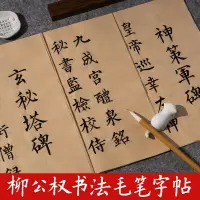 神策軍碑
皇帝巡幸左
九成宮醴泉銘
秘書監檢校侍
玄秘塔碑
僧録
柳公权书法毛笔字帖